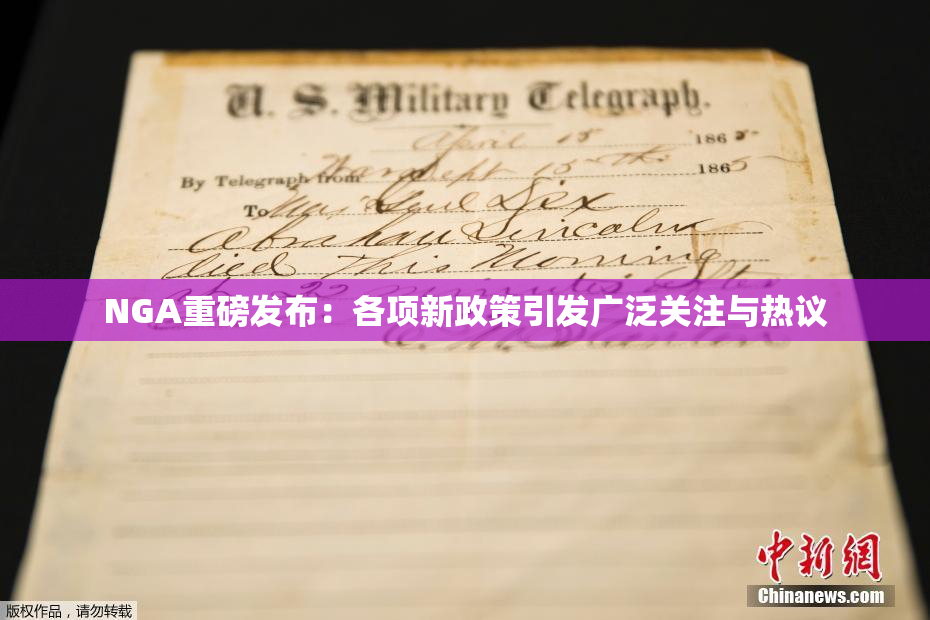 U. S. Military Telegraph.
April 15 1865
By Telegraph from War Dept 15th 1865
To Maj Genl Dix
Abraham Lincoln
died This Morning
at 22 minutes after
NGA重磅发布：各项新政策引发广泛关注与热议
E. M. Stanton
中新网
Chinanews.com
版权作品，请勿转载